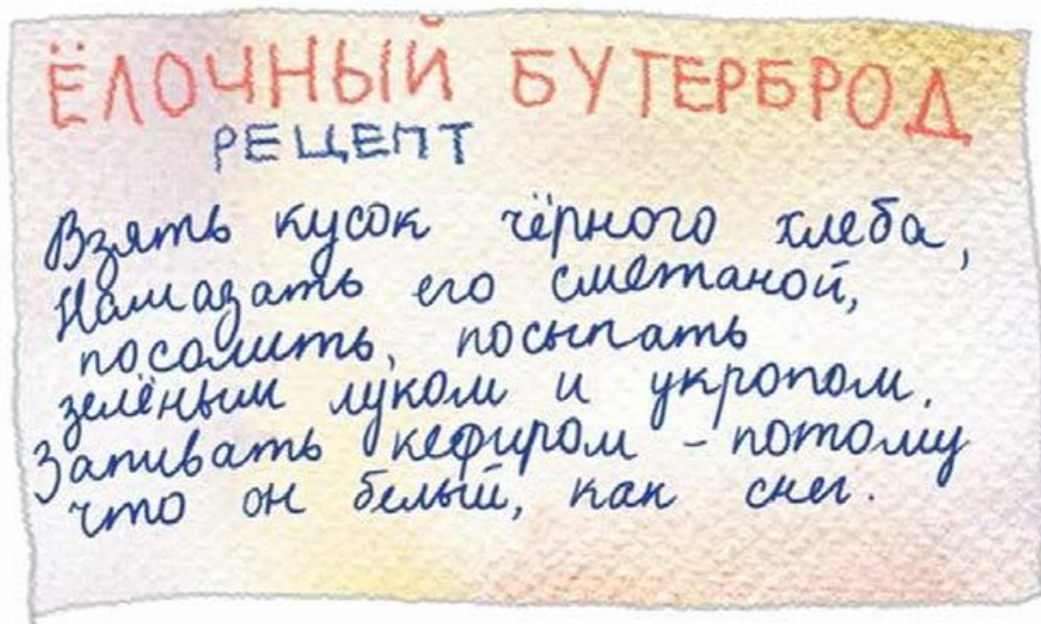 ЁЛОЧНЫЙ БУТЕРБРОД
РЕЦЕПТ
Взять кусок чёрного хлеба,
Намазать его сметаной,
посолить, посыпать
зелёным луком и укропом.
Запивать кефиром – потому
что он белый, как снег.